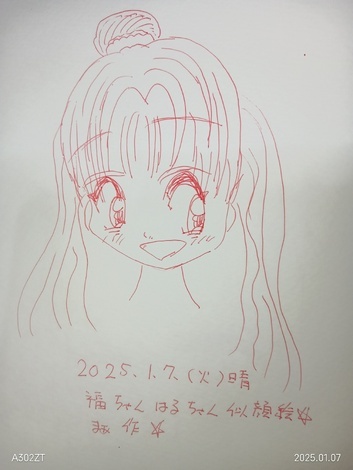 2025.1.7.(火)晴
福ちゃんはるちゃん似顔絵☆
作☆
A302ZT
2025.01.07